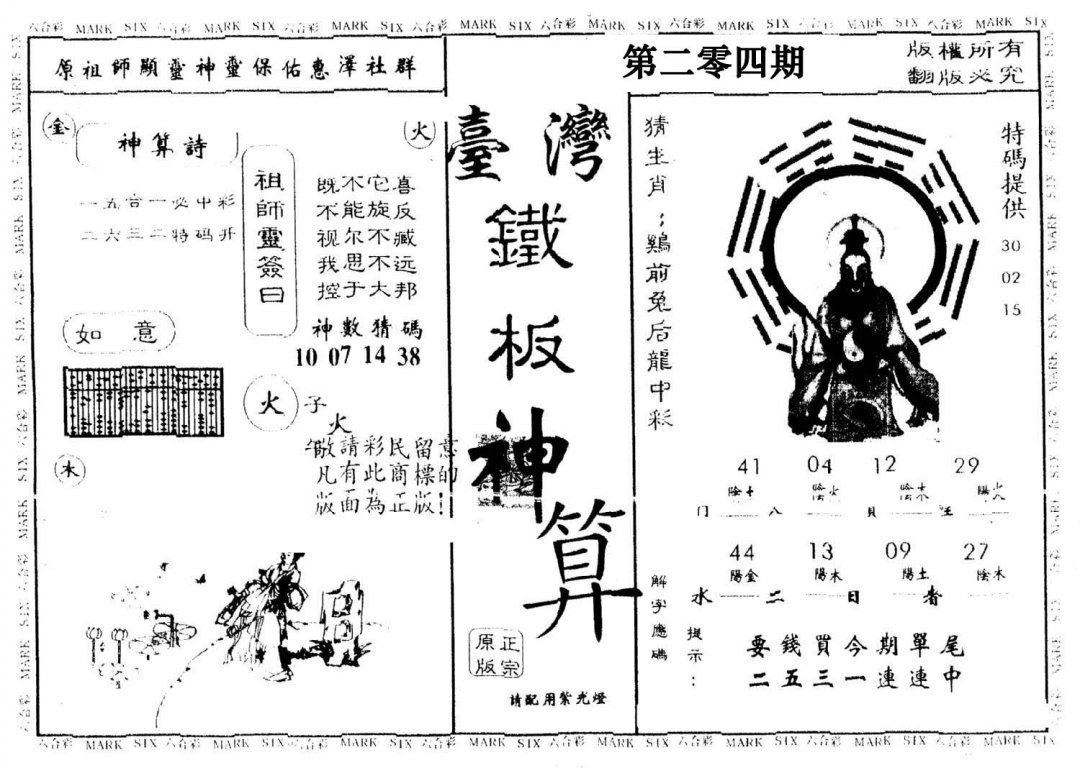 六合彩 MARK SIX 六合彩 MARK SIX 六合彩 MARK SIX 六合彩 MARK SIX 六合彩 MARK SIX 六合彩 MARK SIX 六合彩 MARK SIX 六合彩 MARK SIX
原祖師顯靈神靈保佑惠澤社群
第二零四期
版權所有
翻版必究
金
神算詩
火
一五合一必中彩
二六三二特码开
祖師靈簽曰
既不它喜
不能旋反
视尔不臧
我思不远
控于大邦
如意
神數猜碼
10 07 14 38
火
子
火
敬請彩民留意
凡有此商標的
版面為正版!
水
臺灣
鐵
板
神
算
正宗
原版
請配用紫光燈
猜生肖；鷄前兔后龍中彩
特碼提供
30
02
15
41 04 12 29
陰土 陰火 陰木 陽火
门 八 貝 王
44 13 09 27
陽金 陽木 陽土 陰木
水 二 日 者
解字應碼
提示：
要錢買今期單尾
二五三一連連中
六合彩 MARK SIX 六合彩 MARK SIX 六合彩 MARK SIX 六合彩 MARK SIX 六合彩 MARK SIX 六合彩 MARK SIX 六合彩 MARK SIX 六合彩 MARK SIX